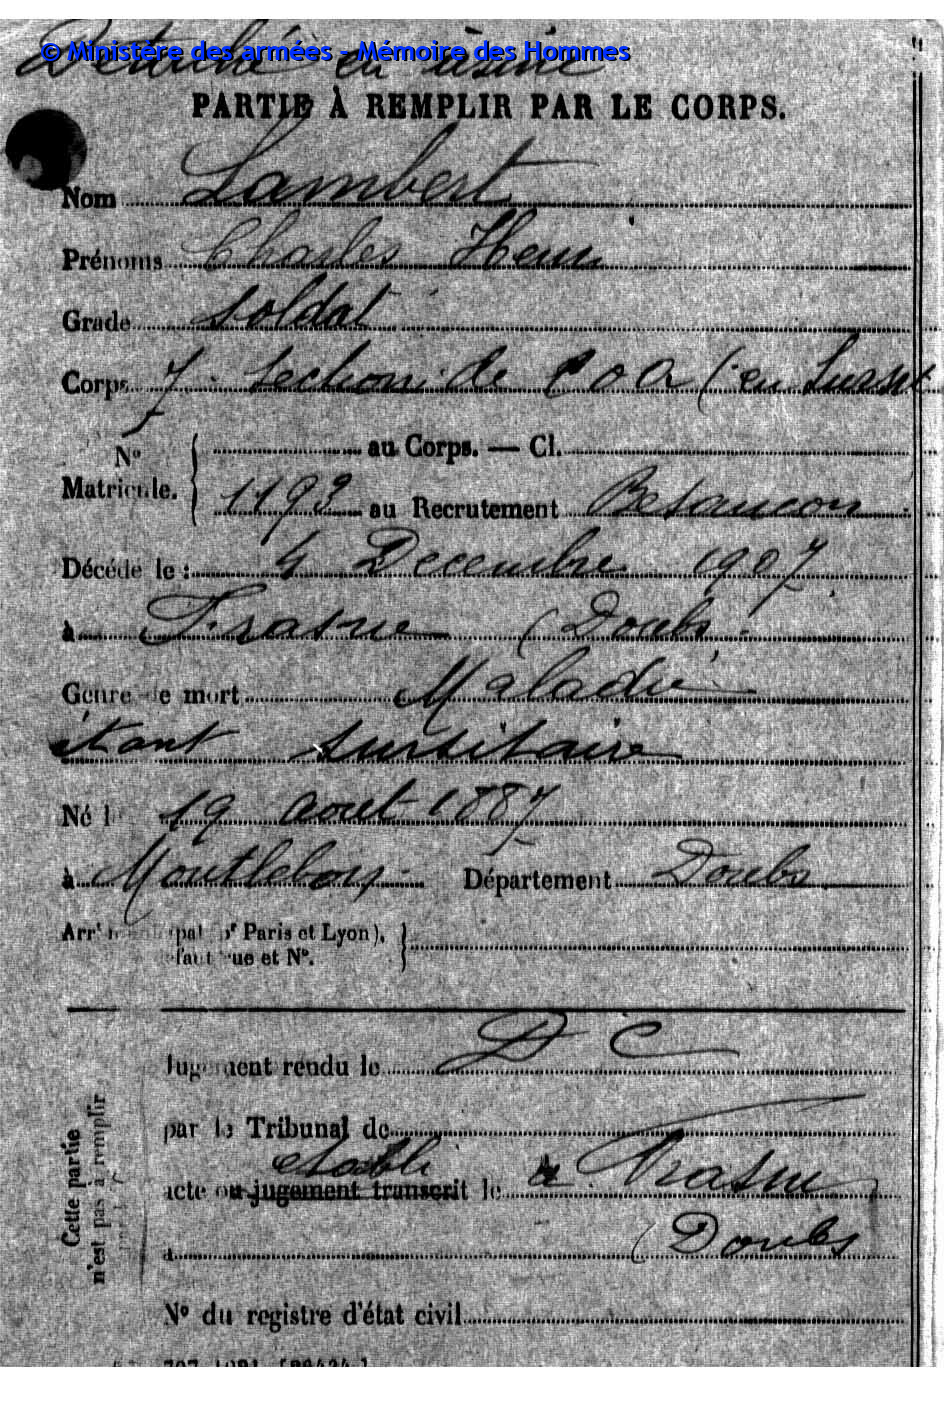 © Ministère des armées - Mémoire des Hommes
Détaché en usine
PARTIE À REMPLIR PAR LE CORPS.
Nom Lambert
Prénoms Charles Henri
Grade soldat
Corps 7 Section de COA (en Sursit
N° au Corps. — Cl.
Matricule. 1193 au Recrutement Besancon
Décédé le : 4 Decembre 1907
à Frasne (Doubs.
Genre de mort Maladie
étant sursitaire
Né le 19 aout 1887
à Montlebon Département Doubs
Arrt municipal (pr Paris et Lyon),
à défaut rue et N°.
Jugement rendu le D C
par le Tribunal de
etabli
acte ou jugement transcrit le à Frasne
à (Doubs
N° du registre d'état civil
Cette partie
n'est pas à remplir